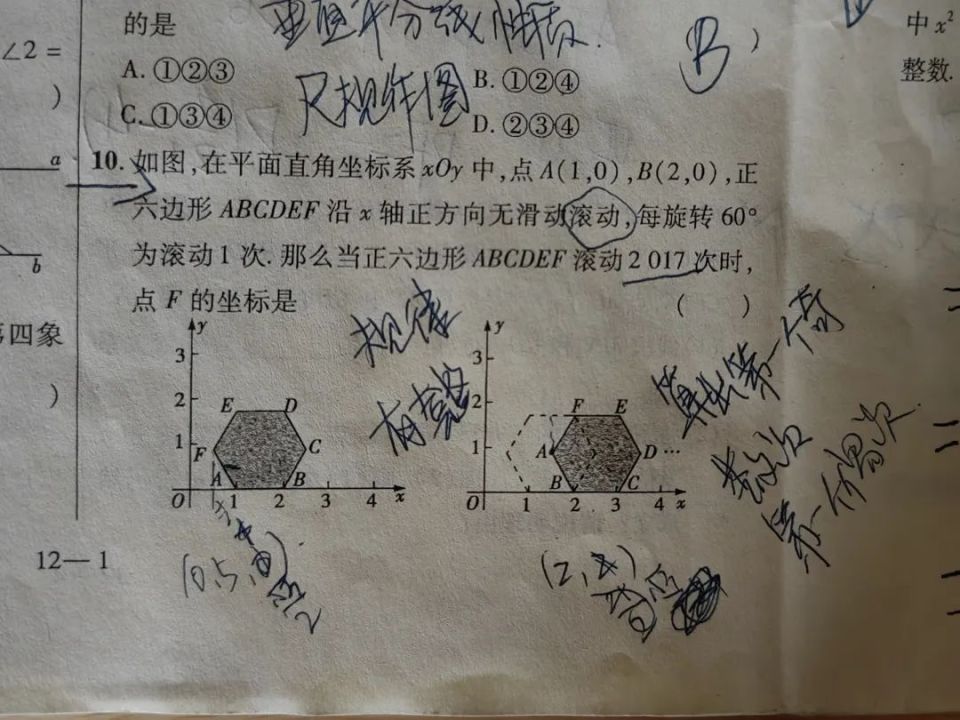 的是
垂直平分线性质.
(B)
中 x²
∠2 =
A. ①②③
B. ①②④
整数.
)
尺规作图
C. ①③④
D. ②③④
a
10. 如图,在平面直角坐标系 xOy 中,点 A(1,0),B(2,0),正
六边形 ABCDEF 沿 x 轴正方向无滑动滚动,每旋转 60°
为滚动 1 次. 那么当正六边形 ABCDEF 滚动 2 017 次时,
b
点 F 的坐标是 ( )
第四象
)
规律
算出第一个奇
数次
第一个偶次
y
3
2
1
E D
F C
A B
O 1 2 3 4 x
y
3
2
1
F E
A D …
B C
O 1 2 3 4 x
12—1
(0.5,
(2,